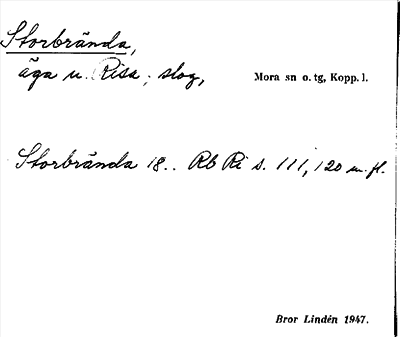 Storbrända,
äga u. Risa; slog,
Mora sn o. tg, Kopp. l.
Storbrända 18.. Rb Ri s. 111, 120 m. fl.
Bror Lindén 1947.